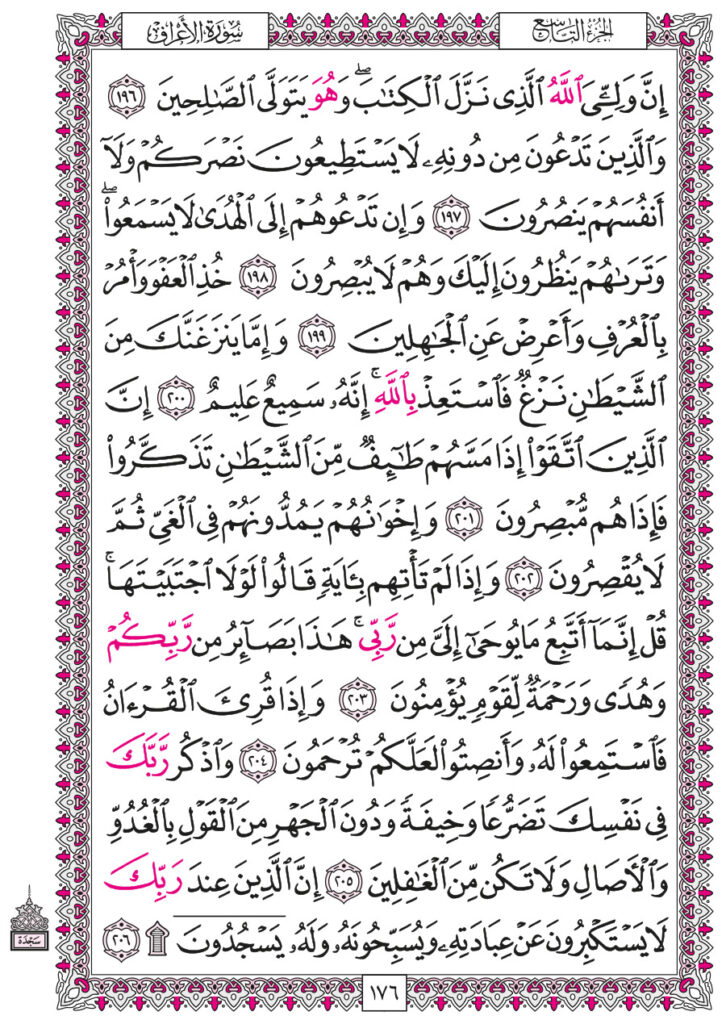 الجزء التاسع
سورة الأعراف
إِنَّ وَلِـِّۧيَ ٱللَّهُ ٱلَّذِي نَزَّلَ ٱلْكِتَٰبَۖ وَهُوَ يَتَوَلَّى ٱلصَّٰلِحِينَ ١٩٦
وَٱلَّذِينَ تَدْعُونَ مِن دُونِهِۦ لَا يَسْتَطِيعُونَ نَصْرَكُمْ وَلَآ
أَنفُسَهُمْ يَنصُرُونَ ١٩٧ وَإِن تَدْعُوهُمْ إِلَى ٱلْهُدَىٰ لَا يَسْمَعُوا۟ۖ
وَتَرَىٰهُمْ يَنظُرُونَ إِلَيْكَ وَهُمْ لَا يُبْصِرُونَ ١٩٨ خُذِ ٱلْعَفْوَ وَأْمُرْ
بِٱلْعُرْفِ وَأَعْرِضْ عَنِ ٱلْجَٰهِلِينَ ١٩٩ وَإِمَّا يَنزَغَنَّكَ مِنَ
ٱلشَّيْطَٰنِ نَزْغٌ فَٱسْتَعِذْ بِٱللَّهِۚ إِنَّهُۥ سَمِيعٌ عَلِيمٌ ٢٠٠ إِنَّ
ٱلَّذِينَ ٱتَّقَوْا۟ إِذَا مَسَّهُمْ طَٰٓئِفٌ مِّنَ ٱلشَّيْطَٰنِ تَذَكَّرُوا۟
فَإِذَا هُم مُّبْصِرُونَ ٢٠١ وَإِخْوَٰنُهُمْ يَمُدُّونَهُمْ فِي ٱلْغَيِّ ثُمَّ
لَا يُقْصِرُونَ ٢٠٢ وَإِذَا لَمْ تَأْتِهِم بِـَٔايَةٍ قَالُوا۟ لَوْلَا ٱجْتَبَيْتَهَاۚ
قُلْ إِنَّمَآ أَتَّبِعُ مَا يُوحَىٰٓ إِلَيَّ مِن رَّبِّيۚ هَٰذَا بَصَآئِرُ مِن رَّبِّكُمْ
وَهُدًى وَرَحْمَةٌ لِّقَوْمٍ يُؤْمِنُونَ ٢٠٣ وَإِذَا قُرِئَ ٱلْقُرْءَانُ
فَٱسْتَمِعُوا۟ لَهُۥ وَأَنصِتُوا۟ لَعَلَّكُمْ تُرْحَمُونَ ٢٠٤ وَٱذْكُر رَّبَّكَ
فِي نَفْسِكَ تَضَرُّعًا وَخِيفَةً وَدُونَ ٱلْجَهْرِ مِنَ ٱلْقَوْلِ بِٱلْغُدُوِّ
وَٱلْءَاصَالِ وَلَا تَكُن مِّنَ ٱلْغَٰفِلِينَ ٢٠٥ إِنَّ ٱلَّذِينَ عِندَ رَبِّكَ
لَا يَسْتَكْبِرُونَ عَنْ عِبَادَتِهِۦ وَيُسَبِّحُونَهُۥ وَلَهُۥ يَسْجُدُونَ ۩ ٢٠٦
سجدة
١٧٦